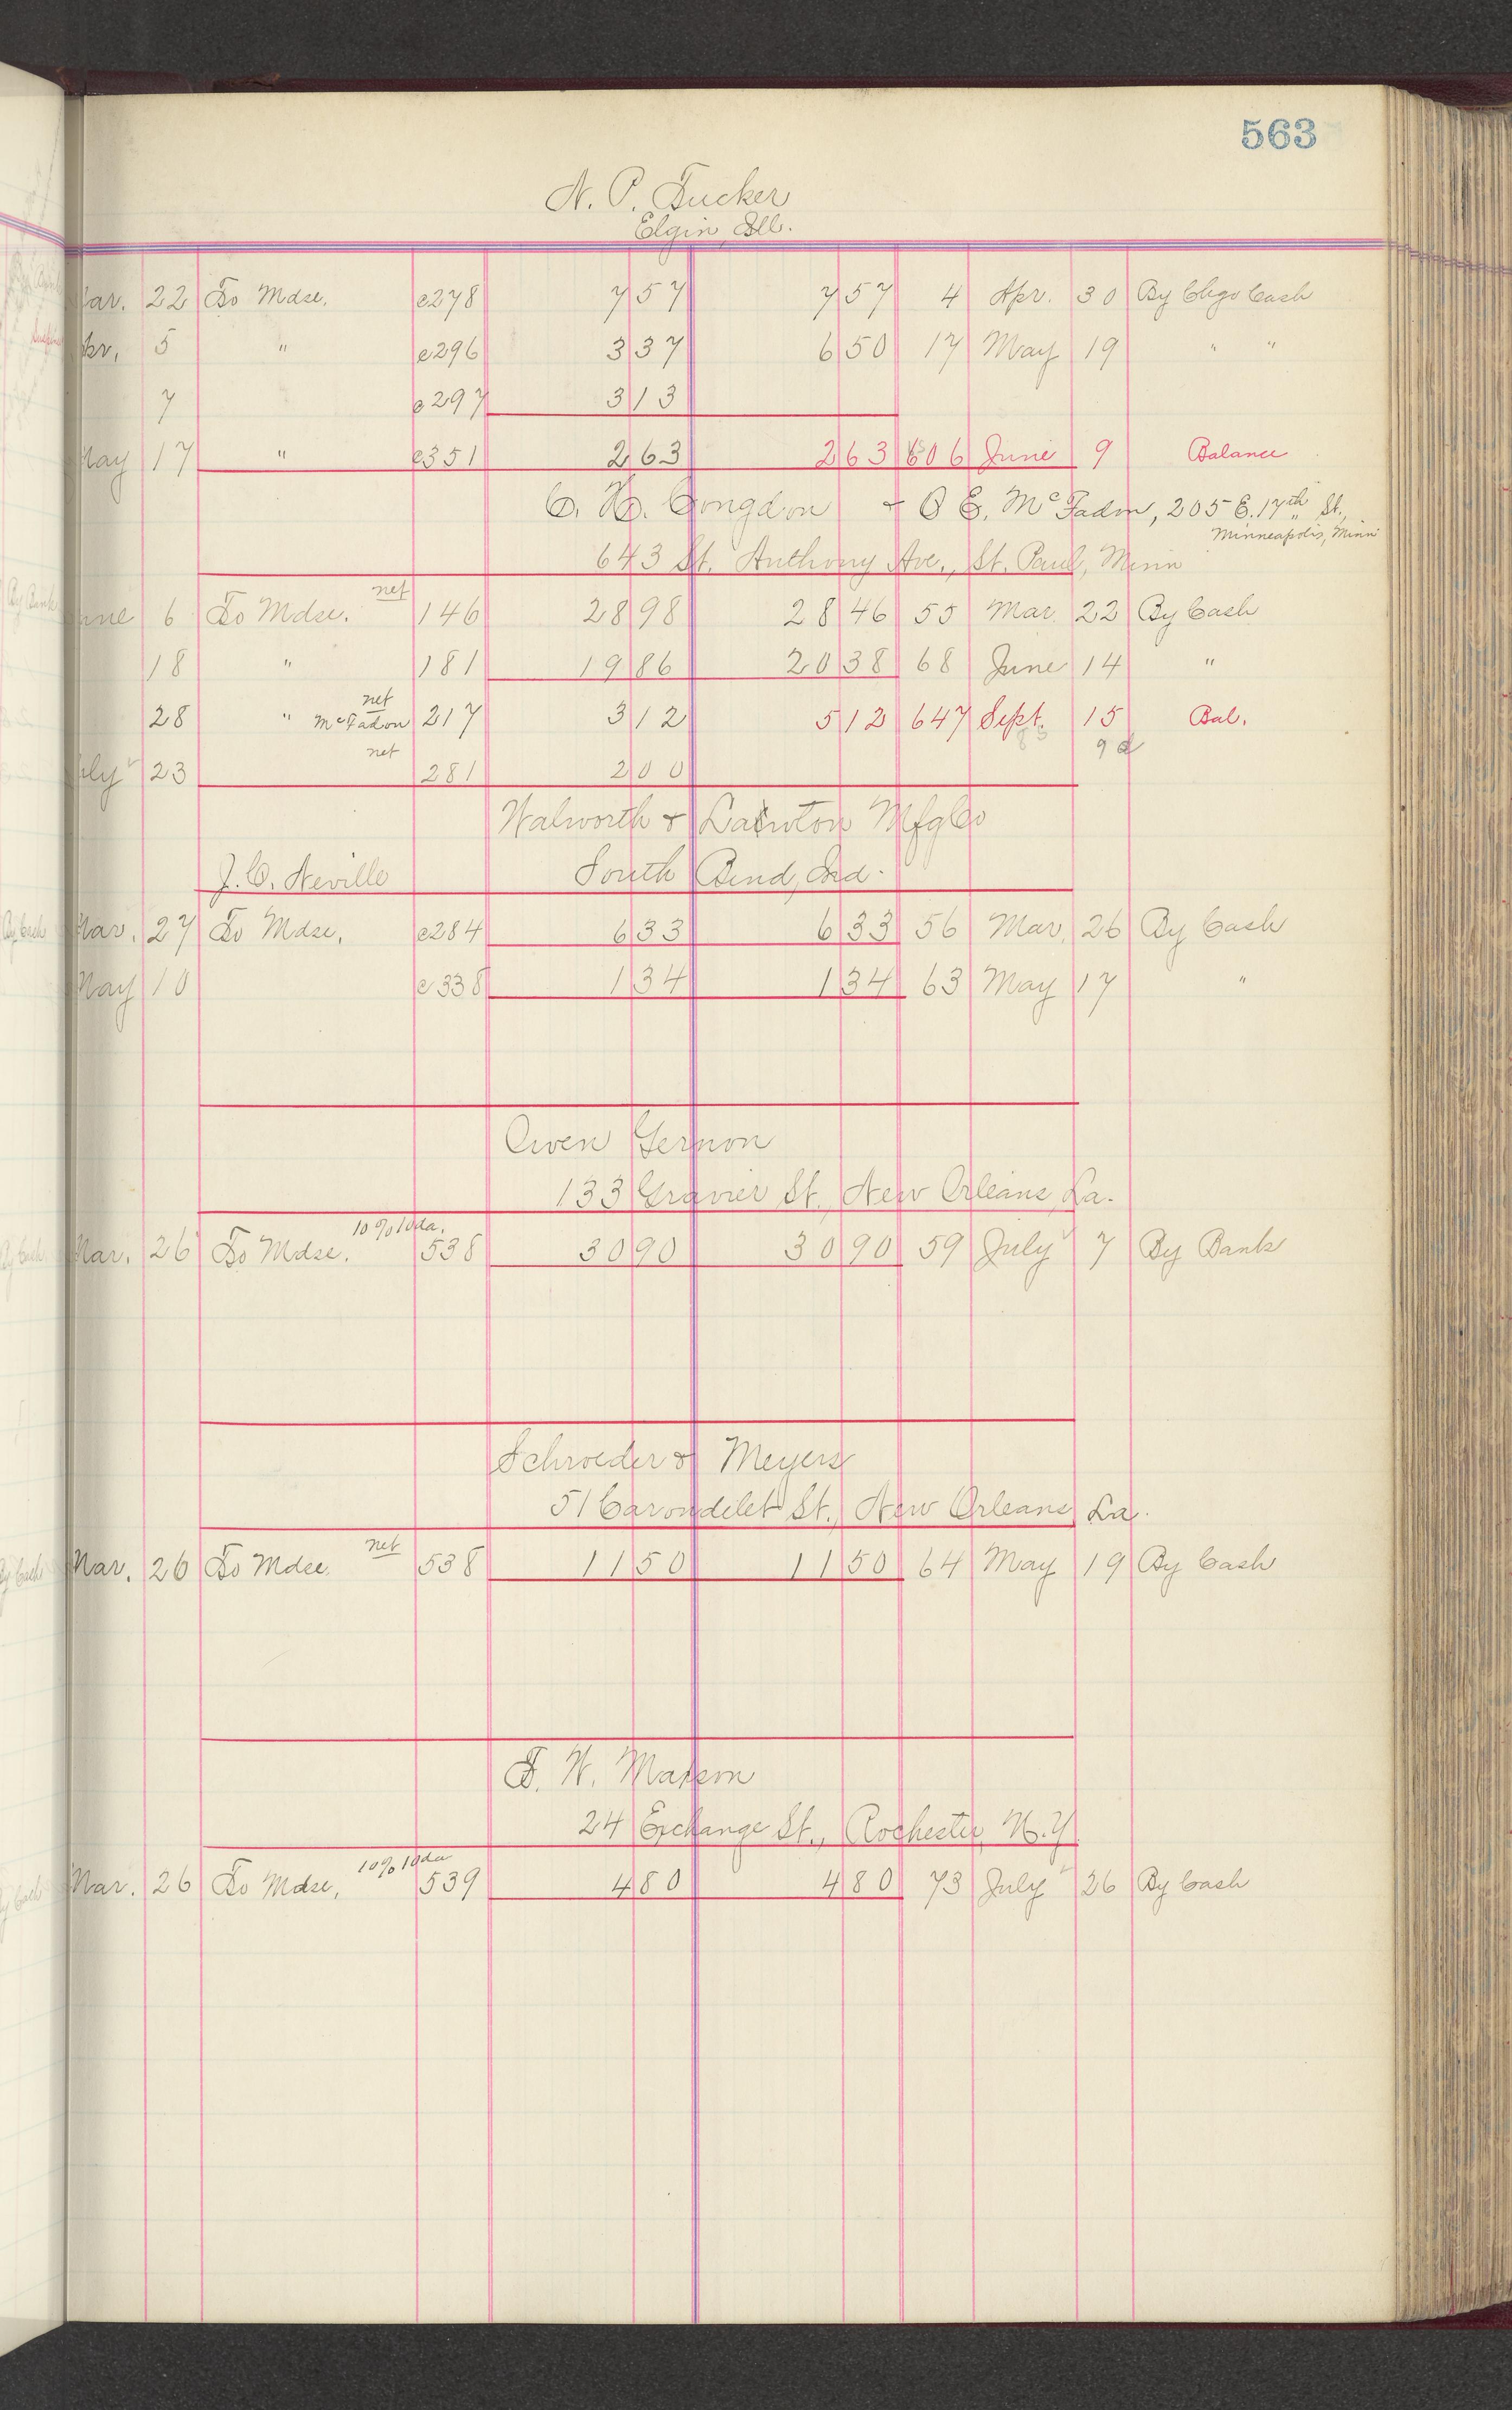 563
N. P. Tucker
Elgin Ill.
ar. 22 To Mdse. c278 7 57 7 57 4 Apr. 30 By Chgo Cash
pr. 5 " c296 3 37 6 50 17 May 19 " "
7 c297 3 13
May 17 " c351 2 63 2 63 606 June 9 Balance
C. H. Congdon & O E. McFadon, 205 E. 17th St.,
Minneapolis, Minn
643 St. Anthony Ave., St. Paul, Minn
net
une 6 To Mdse. 146 28 98 28 46 55 Mar. 22 By Cash
18 " 181 19 86 20 38 68 June 14 "
net
28 " McFadon 217 3 12 5 12 647 Sept. 15 Bal.
net
uly 23 281 2 00
Walworth & Mfg Co
J. C. Neville South Bend, Ind.
Mar. 27 To Mdse. c284 6 33 6 33 56 Mar. 26 By Cash
May 10 c338 1 34 1 34 63 May 17 "
Owen Gernon
133 Gravier St., New Orleans, La.
10% 10 da.
Mar. 26 To Mdse. 538 30 90 30 90 59 July 7 By Bank
Schroeder & Meyers
51 Carondelet St., New Orleans La.
net
Mar. 26 To Mdse. 538 11 50 11 50 64 May 19 By Cash
F. W. Maxson
24 Exchange St., Rochester N.Y.
10% 10 da
Mar. 26 To Mdse. 539 4 80 4 80 73 July 26 By Cash